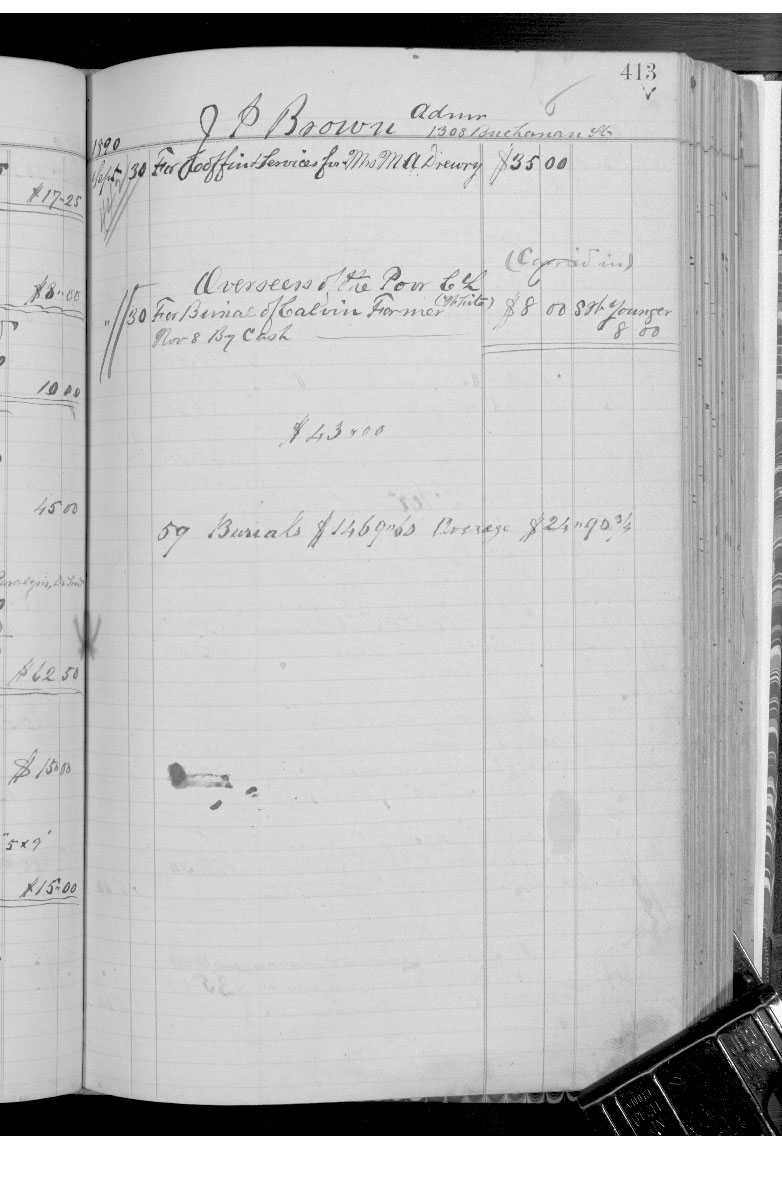 $17-25
$8-00
10 00
45 00
$62 50
$15-00
"5x9"
$15-00
413
J P Brown Admr
1308 Buchanan St
1890
Sept 30 For Coffin & Services for Mrs M A Drewry $35 00
Overseers of the Poor
" 30 For Burial of Calvin Farmer (White) $8 00 Younger
Nov 8 By Cash 8 00
$43-00
59 Burials $1469-60 Average $24-90 3/4